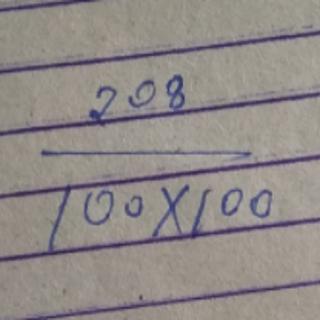 208
100X100